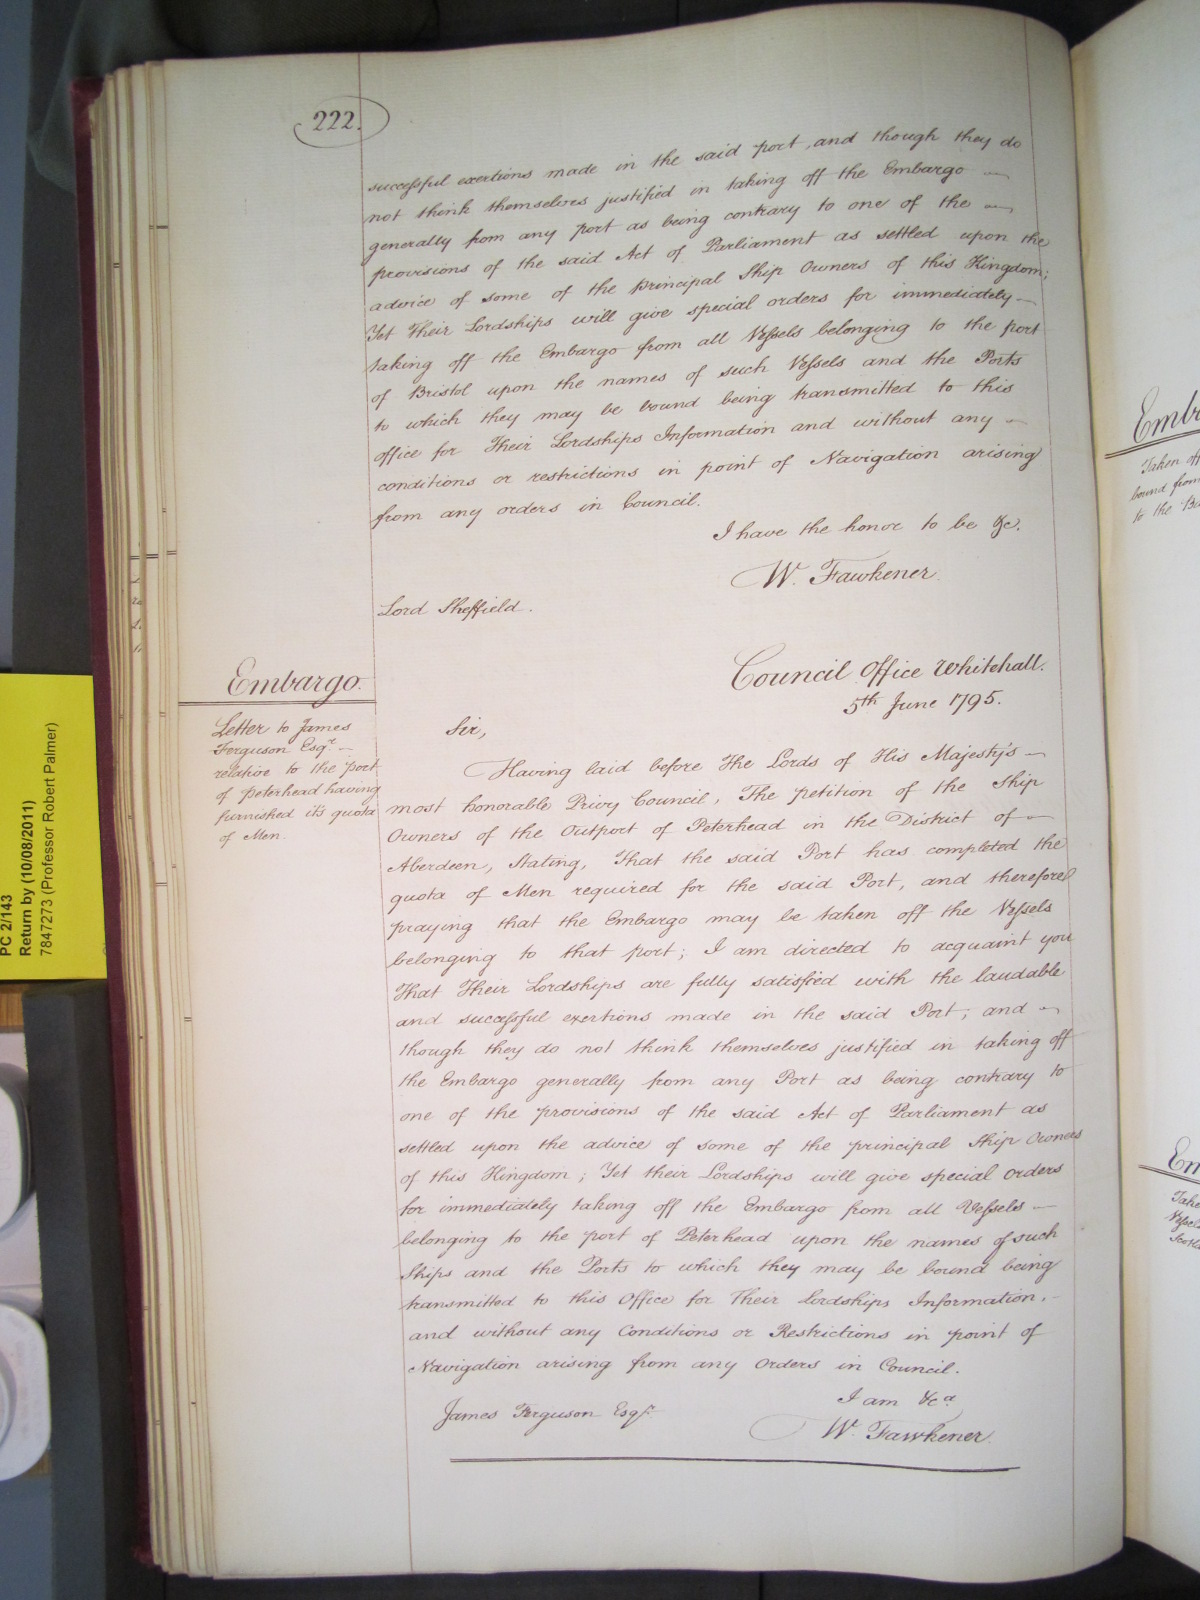 222.
successful exertions made in the said port, and though they do
not think themselves justified in taking off the Embargo —
generally from any port as being contrary to one of the —
provisions of the said Act of Parliament as settled upon the
advice of some of the principal Ship Owners of this Kingdom;
Yet Their Lordships will give special orders for immediately —
taking off the Embargo from all Vessels belonging to the port
of Bristol upon the names of such Vessels and the Ports
to which they may be bound being transmitted to this
office for Their Lordships Information and without any —
conditions or restrictions in point of Navigation arising
from any orders in Council.
I have the honor to be &c.
W. Fawkener.
Lord Sheffield.
Embargo.
Letter to James
Ferguson Esqr. —
relative to the port
of Peterhead having
furnished its quota
of Men.
Council Office Whitehall.
5th June 1795.
Sir,
Having laid before The Lords of His Majesty's —
most honorable Privy Council, The petition of the Ship
Owners of the Outport of Peterhead in the District of —
Aberdeen, Stating, That the said Port has completed the
quota of Men required for the said Port, and therefore
praying that the Embargo may be taken off the Vessels
belonging to that port; I am directed to acquaint you
That Their Lordships are fully satisfied with the laudable
and successful exertions made in the said Port; and —
though they do not think themselves justified in taking off
the Embargo generally from any Port as being contrary to
one of the provisions of the said Act of Parliament as
settled upon the advice of some of the principal Ship Owners
of this Kingdom; Yet their Lordships will give special Orders
for immediately taking off the Embargo from all Vessels —
belonging to the port of Peterhead upon the names of such
Ships and the Ports to which they may be bound being
transmitted to this Office for Their Lordships Information. —
and without any Conditions or Restrictions in point of
Navigation arising from any Orders in Council.
I am &ca
James Ferguson Esqr.
W. Fawkener.
PC 2/143
Return by (10/08/2011)
7847273 (Professor Robert Palmer)
Taken off
bound from
to the